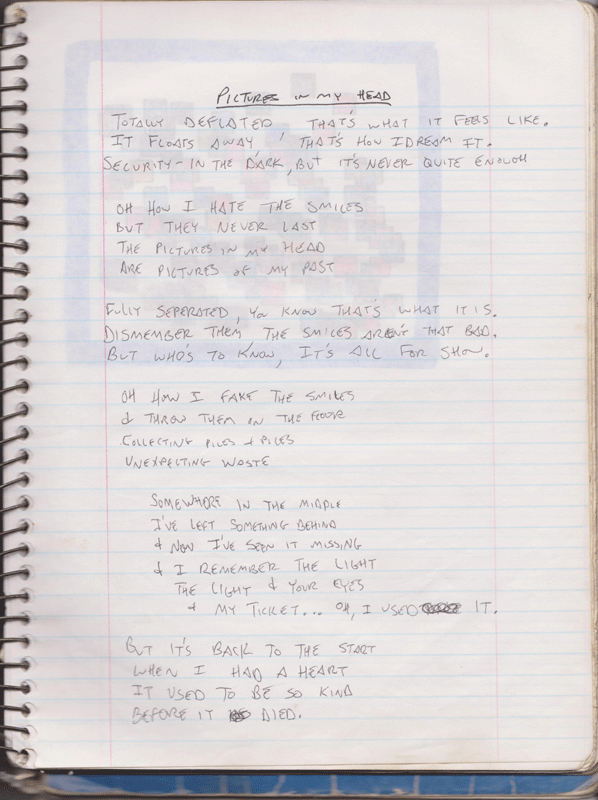 PICTURES IN MY HEAD
TOTALLY DEFLATED THAT'S WHAT IT FEELS LIKE.
IT FLOATS AWAY, THAT'S HOW I DREAM IT.
SECURITY - IN THE DARK, BUT IT'S NEVER QUITE ENOUGH
OH HOW I HATE THE SMILES
BUT THEY NEVER LAST
THE PICTURES IN MY HEAD
ARE PICTURES OF MY PAST
FULLY SEPERATED, YOU KNOW THAT'S WHAT IT IS.
DISMEMBER THEM, THE SMILES AREN'T THAT BAD.
BUT WHO'S TO KNOW, IT'S ALL FOR SHOW.
OH HOW I FAKE THE SMILES
& THROW THEM ON THE FLOOR
COLLECTING PILES & PILES
UNEXPECTING WASTE
SOMEWHERE IN THE MIDDLE
I'VE LEFT SOMETHING BEHIND
& NOW I'VE SEEN IT MISSING
& I REMEMBER THE LIGHT
THE LIGHT & YOUR EYES
& MY TICKET... OH, I USED IT.
BUT IT'S BACK TO THE START
WHEN I HAD A HEART
IT USED TO BE SO KIND
BEFORE IT DIED.